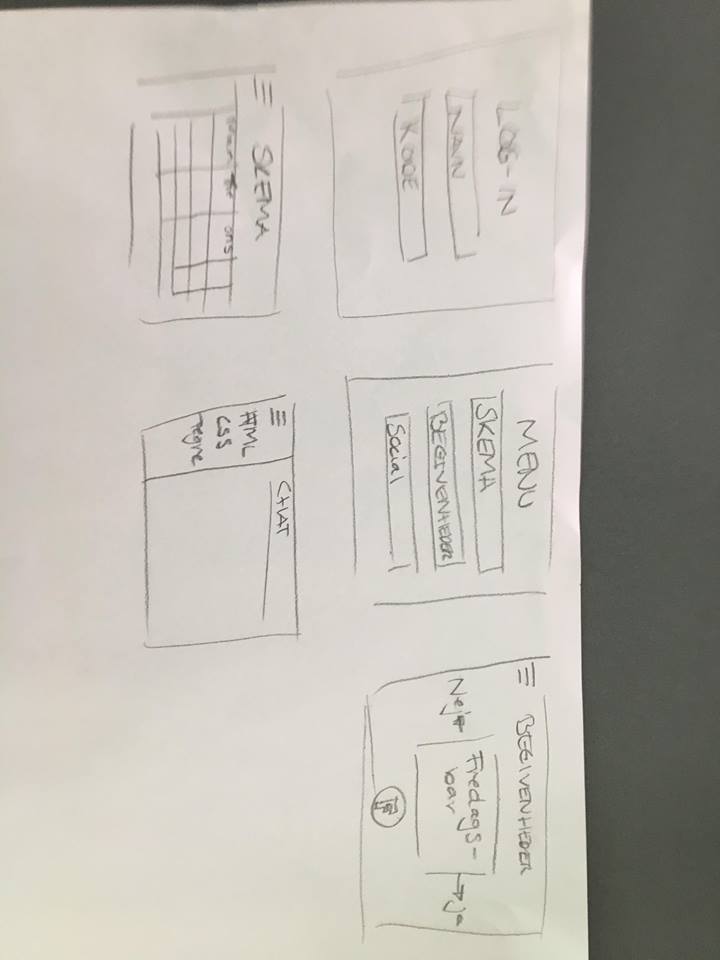 LOG-IN
NAVN
KODE
MENU
SKEMA
BEGIVENHEDER
Social
BEGIVENHEDER
Nej
Fredags-
bar
ja
F
SKEMA
man tir ons
CHAT
HTML
CSS
Tegne